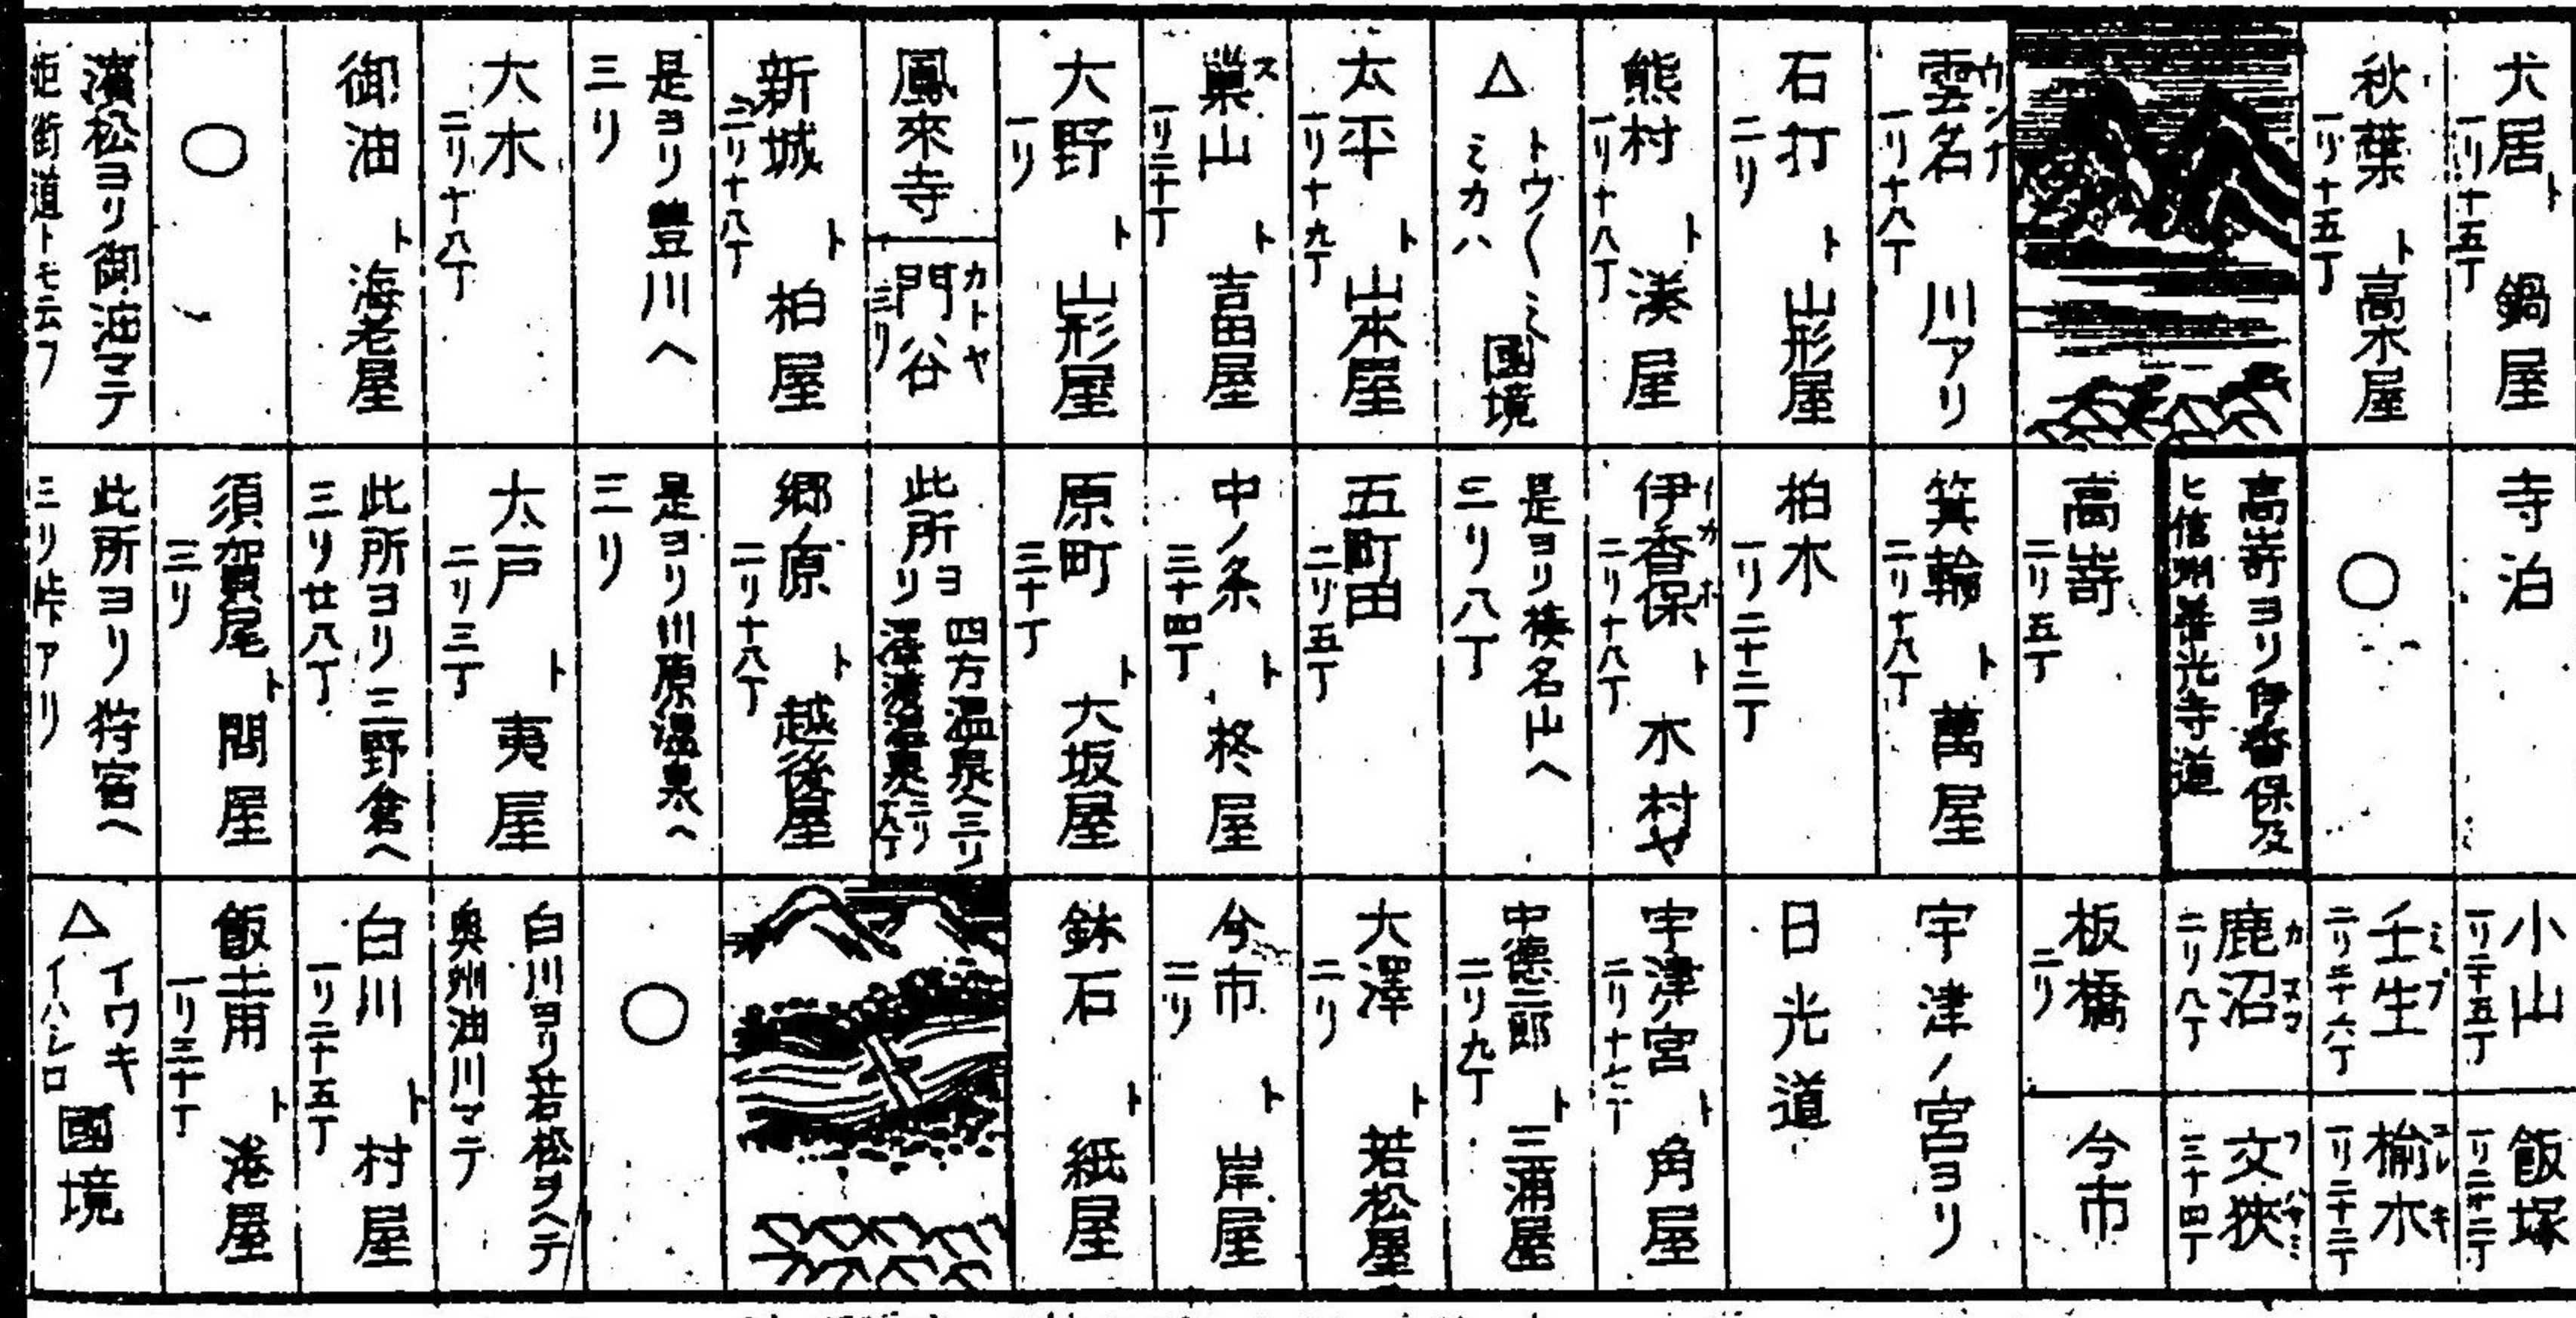 犬居
ト
一リ十五丁
鍋屋
秋葉
ト
一リ十五丁
高木屋
雲名
ウンナ
一リ十八丁
川アリ
石打
ト
二リ
山形屋
熊村
ト
一リ十八丁
湊屋
△
トウ〱ミ
ミカハ
國境
太平
ト
一リ十九丁
山本屋
巣山
ス
ト
一リ二十丁
吉田屋
大野
ト
一リ
山形屋
鳳來寺
門谷
カトヤ
三リ
新城
ト
二リ十八丁
柏屋
是ヨリ豊川ヘ
三リ
大木
二リ十八丁
御油
ト
海老屋
○
濱松ヨリ御油マテ
街道トモ云フ
寺泊
○
高嵜ヨリ伊香保及
ヒ信州善光寺道
高嵜
二リ五丁
箕輪
ト
二リ十八丁
萬屋
柏木
一リ二十二丁
伊香保
イカホ
ト
二リ十八丁
木村ヤ
是ヨリ榛名山ヘ
三リ八丁
五町田
二リ五丁
中ノ条
ト
三十四丁
柊屋
原町
ト
三十丁
大坂屋
此所ヨリ
四方温泉ヘ三リ
澤渡温泉ヘ二リ十八丁
郷ノ原
ト
二リ十八丁
越後屋
是ヨリ川原温泉ヘ
三リ
大戸
ト
二リ三丁
夷屋
此所ヨリ三野倉ヘ
三リ廿八丁
須賀尾
ト
三リ
問屋
此所ヨリ狩宿ヘ
三リ峠アリ
小山
一リ二十五丁
飯塚
一リ二十二丁
壬生
ミブ
二リ二十六丁
楡木
ニレキ
一リ二十二丁
鹿沼
カヌマ
二リ八丁
文狹
フハサミ
三十四丁
板橋
二リ
今市
宇津ノ宮ヨリ
日光道
宇津ノ宮
ト
二リ十七丁
角屋
中徳三郎
ト
二リ九丁
三浦屋
大澤
ト
二リ
若松屋
今市
ト
二リ
岸屋
鉢石
ト
紙屋
○
白川ヨリ若松ヲヘテ
奥州油川マテ
白川
ト
一リ二十五丁
村屋
飯土用
ト
一リ三十丁
港屋
△
イワキ
イハシロ
國境